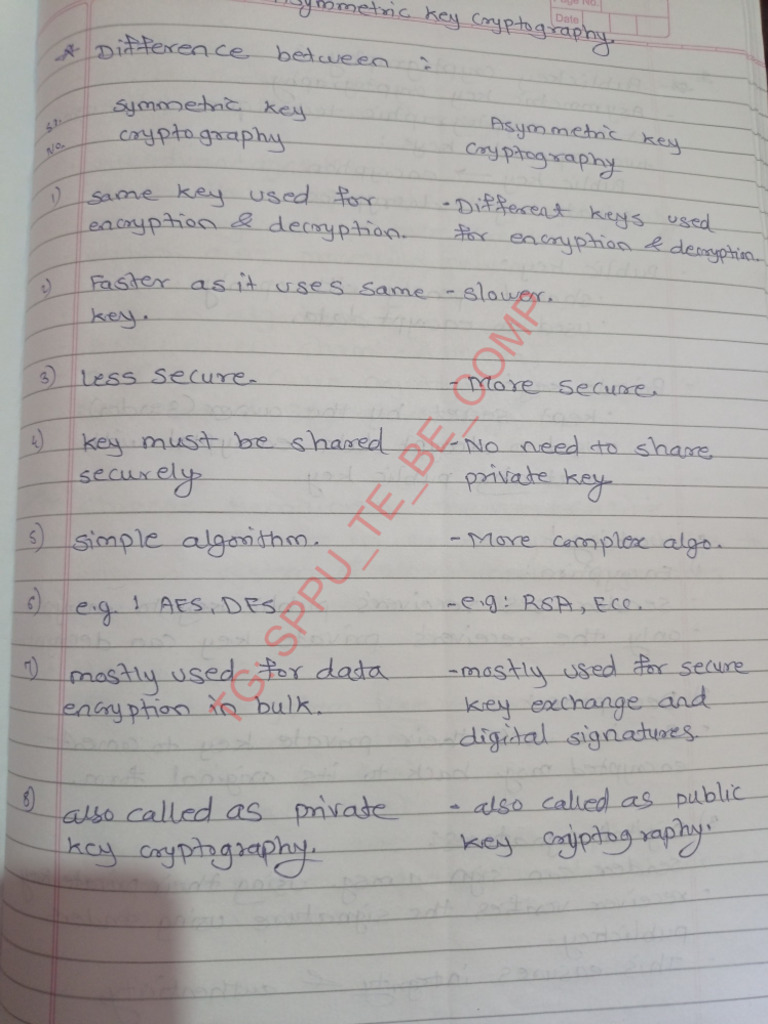 Asymmetric Key Cryptography.
Page No.
Date
* Difference between :
Sr. No.
Symmetric key cryptography
Asymmetric key cryptography
1) same key used for encryption & decryption.
- Different keys used for encryption & decryption.
2) Faster as it uses same key.
- slower.
3) less secure.
- More secure.
4) key must be shared securely
- No need to share private key
5) simple algorithm.
- More complex algo.
6) e.g. : AES, DES
- e.g : RSA, ECC.
7) mostly used for data encryption in bulk.
- mostly used for secure key exchange and digital signatures.
8) also called as private key cryptography.
- also called as public key cryptography.
TG: SPPU_TE_BE_COMP